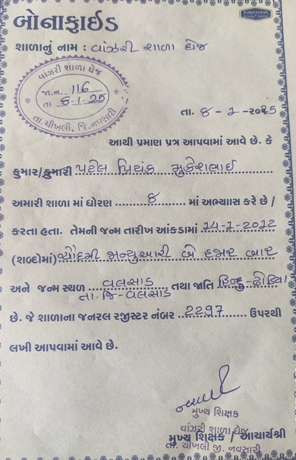 બોનાફાઈડ
શાળાનું નામ : વાંઝરી શાળા ઘેજ
વાંઝરી શાળા ઘેજ
જા.નં. 116
તા. 8-1-25
તા. ચીખલી, જિ. નવસારી
તા. ૮-૧-૨૦૨૫
આથી પ્રમાણ પત્ર આપવામાં આવે છે. કે
કુમાર/કુમારી પટેલ પ્રિયંક મુકેશભાઈ
અમારી શાળા માં ધોરણ ૪ માં અભ્યાસ કરે છે /
કરતા હતા. તેમની જન્મ તારીખ આંકડામાં 14-1-2012
(શબ્દોમાં) ચૌદમી જાન્યુઆરી બે હજાર બાર
અને જન્મ સ્થળ વલસાડ તથા જાતિ હિન્દુ-ધોડિયા
તા.જિ-વલસાડ
છે. જે શાળાના જનરલ રજીસ્ટર નંબર 2297 ઉપરથી
લખી આપવામાં આવે છે.
મુખ્ય શિક્ષક
વાંઝરી શાળા ઘેજ
મુખ્ય શિક્ષક / આચાર્યશ્રી
તા. ચીખલી જી. નવસારી